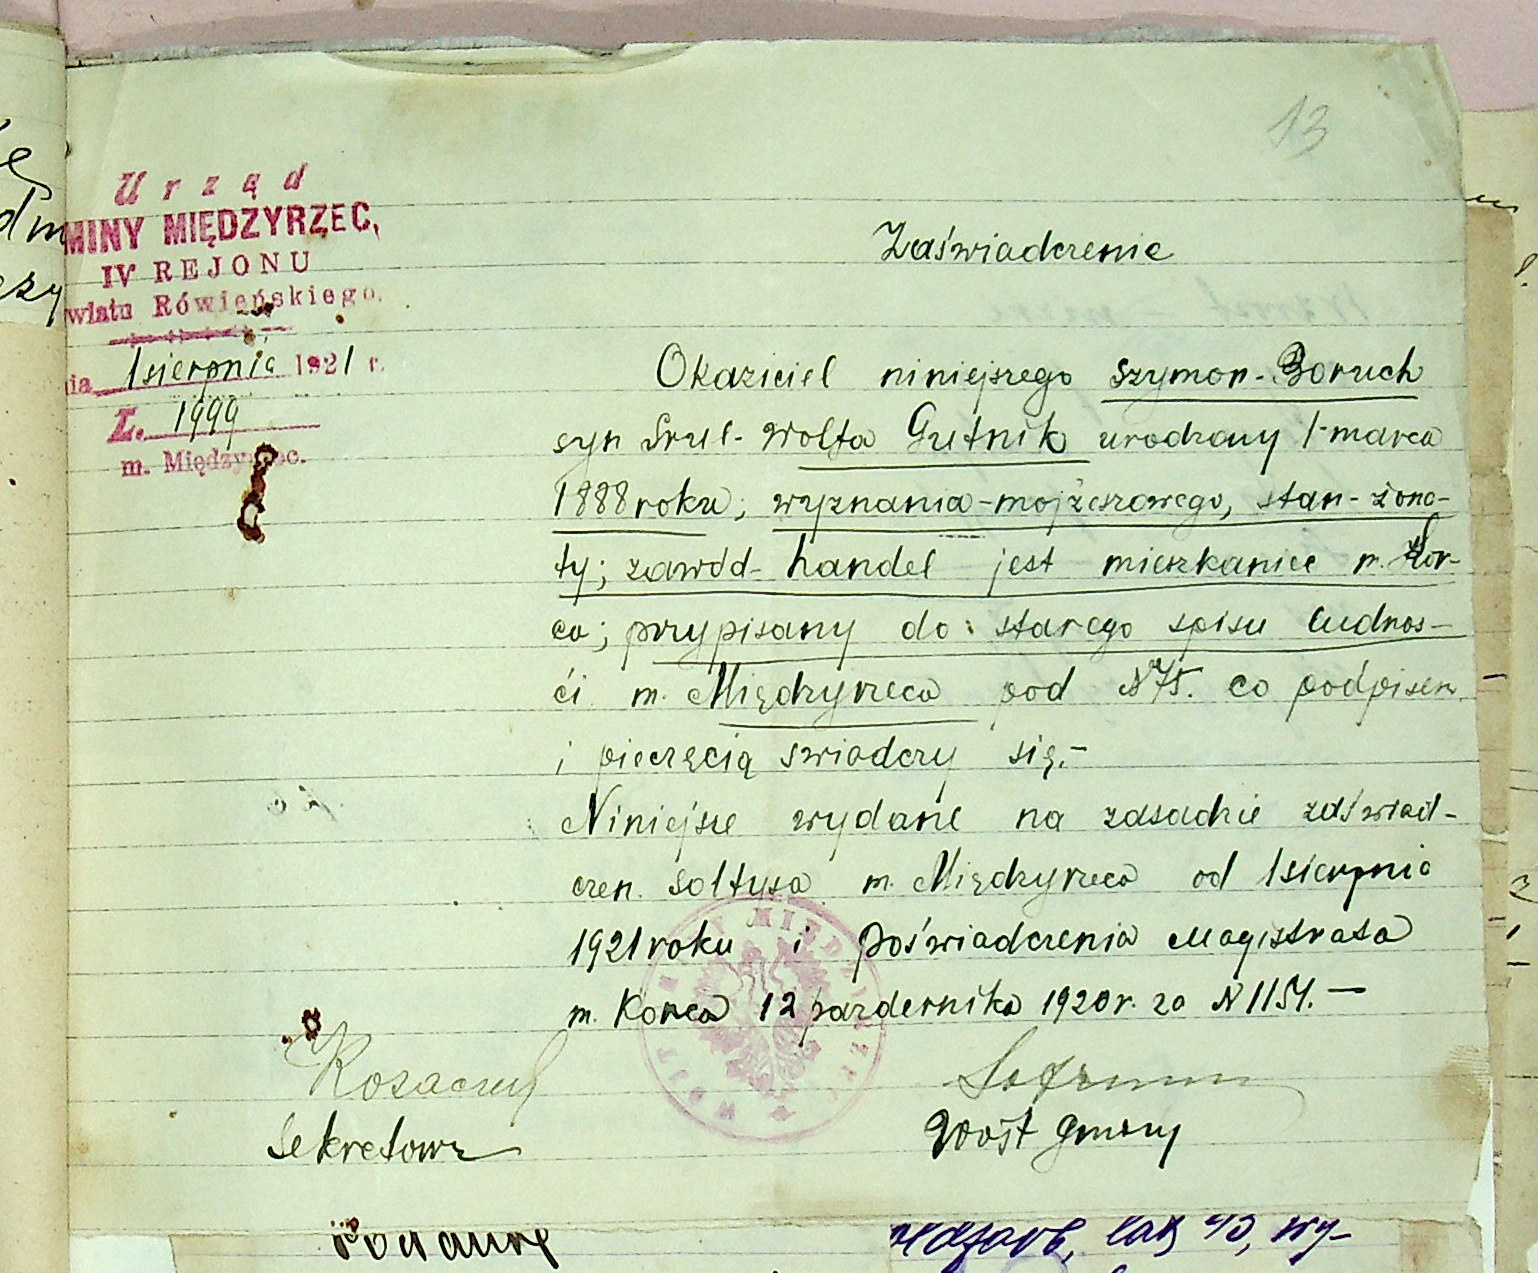 13
Urząd
MINY MIĘDZYRZEC,
IV REJONU
wiatu Rówieńskiego.
nia 1 sierpnia 1921 r.
L. 1999
m. Międzyrzec.
Zaświadczenie
Okaziciel niniejszego Szymon-Boruch
syn Srul-Wolfa Gutnik urodzony 1 marca
1888 roku; wyznania-mojżeszowego, stan-żona-
ty; zawód-handel jest mieszkaniec m. Kor-
ca; przypisany do starego spisu ludnoś-
ći m. Międzyrzeca pod N 75. co podpisem
i pieczęcią swiadczy się.-
Niniejsze wydane na zasadzie zaświad-
czen. sołtysa m. Międzyrzeca od 1 sierpnia
1921 roku i poświadczenia Magistrata
m. Korca 12 pazdernika 1920 r. za N 1151.—
WÓJT GMINY MIĘDZYRZEC
Kozaczuk
Sekretarz
Wójt gminy
Podanie
lat 43, wy-